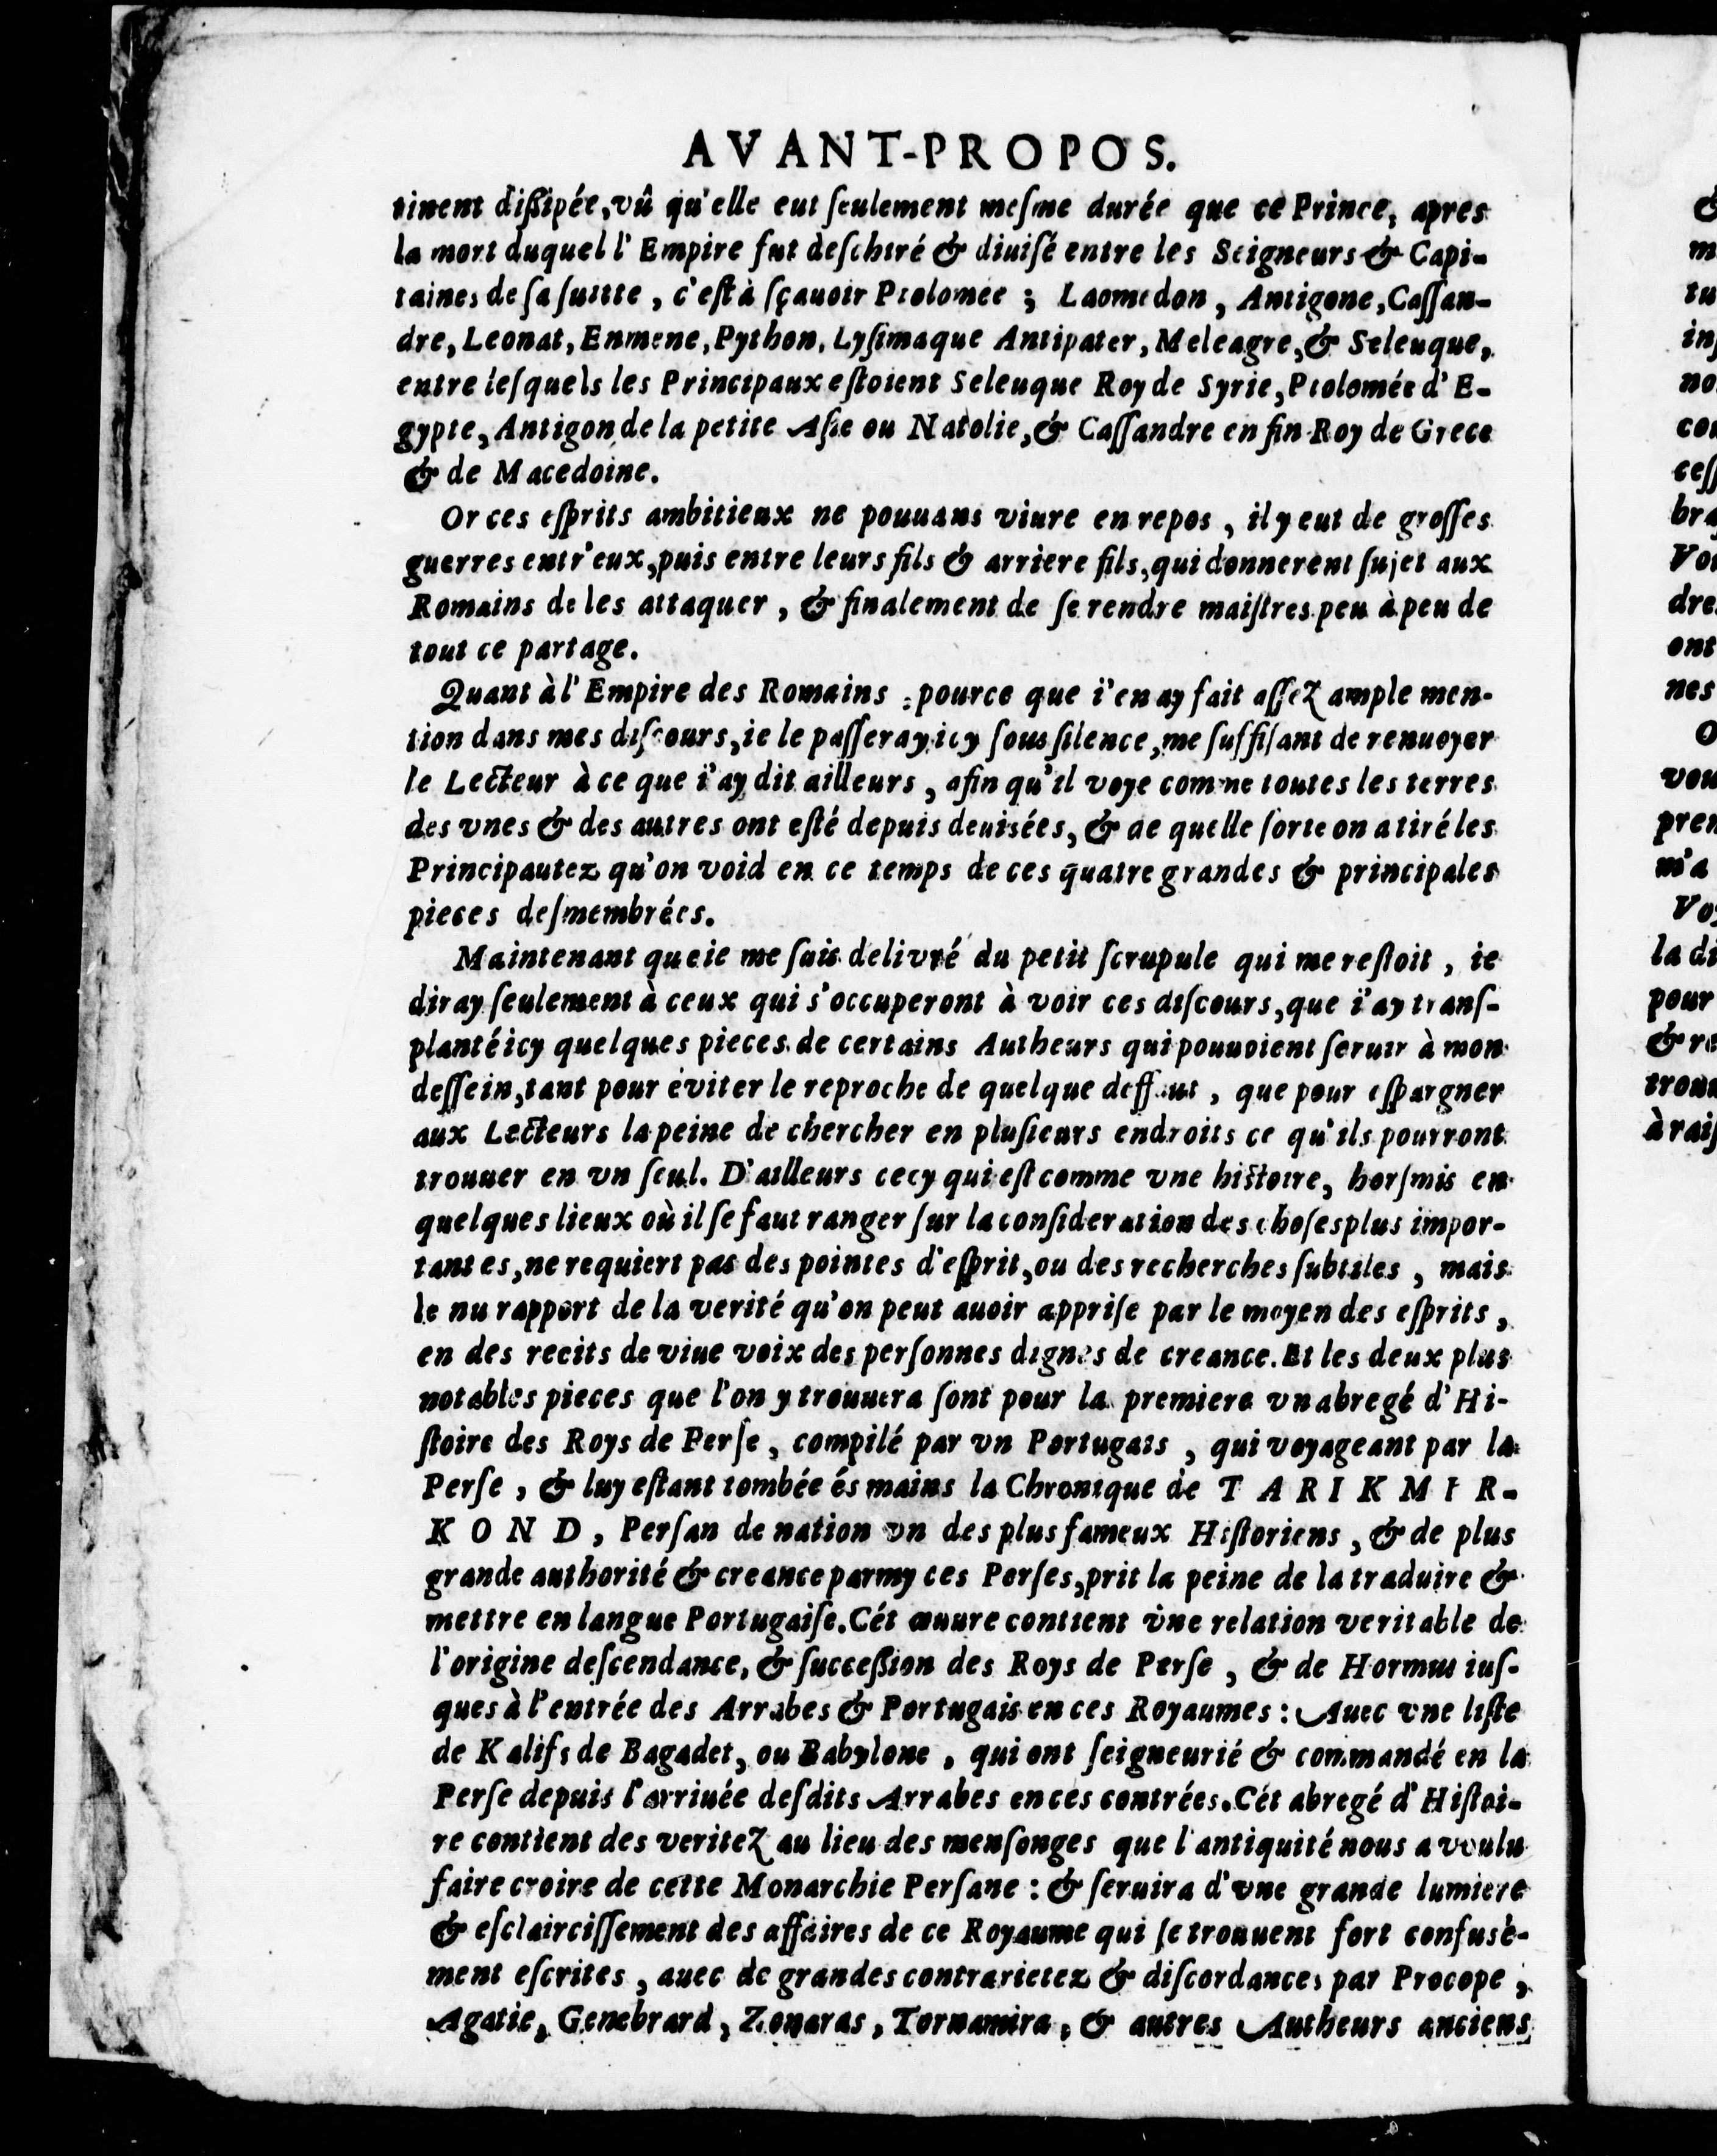 AVANT-PROPOS.
tinent dißipée, vû qu'elle eut ſeulement meſme durée que ce Prince, apres
la mort duquel l'Empire fut deſchiré & diuiſé entre les Seigneurs & Capi-
taines de ſa ſuitte, c'eſt à ſçauoir Ptolomée ; Laomedon, Antigone, Caſſan-
dre, Leonat, Enmene, Python, Lyſimaque Antipater, Meleagre, & Seleuque,
entre leſquels les Principaux eſtoient Seleuque Roy de Syrie, Ptolomée d'E-
gypte, Antigon de la petite Aſie ou Natolie, & Caſſandre en fin Roy de Grece
& de Macedoine.
Or ces eſprits ambitieux ne pouuans viure en repos, il y eut de groſſes
guerres entr'eux, puis entre leurs fils & arriere fils, qui donnerent ſujet aux
Romains de les attaquer, & finalement de ſe rendre maiſtres peu à peu de
tout ce partage.
Quant à l'Empire des Romains ; pource que i'en ay fait aſſeZ ample men-
tion dans mes diſcours, ie le paſſeray icy ſous ſilence, me ſuffiſant de renuoyer
le Lecteur à ce que i'ay dit ailleurs, afin qu'il voye comme toutes les terres
des vnes & des autres ont eſté depuis deuisées, & de quelle ſorte on a tiré les
Principautez qu'on void en ce temps de ces quatre grandes & principales
pieces deſmembrées.
Maintenant que ie me ſuis delivré du petit ſcrupule qui me reſtoit, ie
diray ſeulement à ceux qui s'occuperont à voir ces diſcours, que i'ay tranſ-
planté icy quelques pieces de certains Autheurs qui pouuoient ſeruir à mon
deſſein, tant pour éviter le reproche de quelque deffaut, que pour eſpargner
aux Lecteurs la peine de chercher en pluſieurs endroits ce qu'ils pourront
trouuer en vn ſeul. D'ailleurs cecy qui eſt comme vne hiſtoire, horſmis en
quelques lieux où il ſe faut ranger ſur la conſideration des choſes plus impor-
tantes, ne requiert pas des pointes d'eſprit, ou des recherches ſubtiles, mais
le nu rapport de la verité qu'on peut auoir appriſe par le moyen des eſprits,
en des recits de viue voix des perſonnes dignes de creance. Et les deux plus
notables pieces que l'on y trouuera ſont pour la premiere vn abregé d'Hi-
ſtoire des Roys de Perſe, compilé par vn Portugais, qui voyageant par la
Perſe, & luy eſtant tombée és mains la Chronique de TARIK MIR-
KOND, Perſan de nation vn des plus fameux Hiſtoriens, & de plus
grande authorité & creance parmy ces Perſes, prit la peine de la traduire &
mettre en langue Portugaiſe. Cét œuure contient vne relation veritable de
l'origine deſcendance, & ſucceßion des Roys de Perſe, & de Hormus iuſ-
ques à l'entrée des Arrabes & Portugais en ces Royaumes : Auec vne liſte
de Kalifs de Bagadet, ou Babylone, qui ont ſeigneurié & commandé en la
Perſe depuis l'arriuée deſdits Arrabes en ces contrées. Cét abregé d'Hiſtoi-
re contient des veriteZ au lieu des menſonges que l'antiquité nous a voulu
faire croire de cette Monarchie Perſane : & ſeruira d'vne grande lumiere
& eſclairciſſement des affaires de ce Royaume qui ſe trouuent fort confusé-
ment eſcrites, auec de grandes contrarietez & diſcordances par Procope,
Agatie, Genebrard, Zonaras, Tornamira, & autres Autheurs anciens
&
m
tu
inſ
no
cou
ceſſ
bra
Vou
dre
ont
nes
O
vou
pren
m'a
Voy
la di
pour
& re
trouu
à raiſ